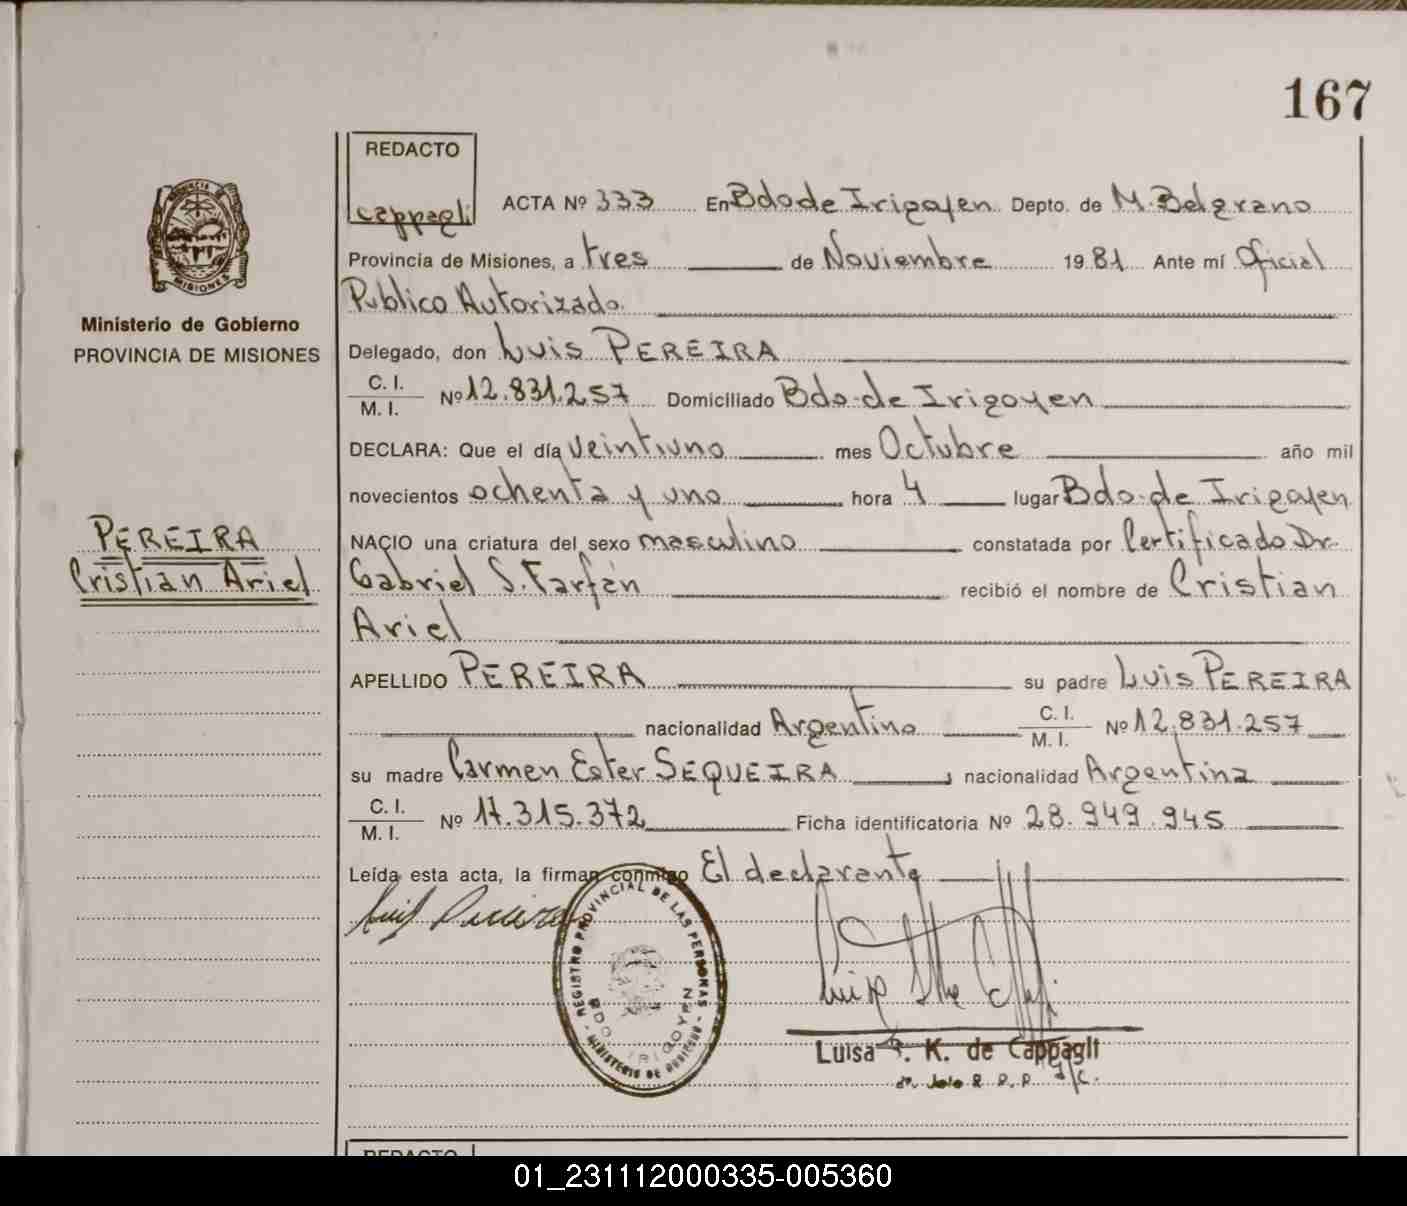 167
REDACTO
Cappagli
ACTA Nº 333 En Bdo de Irigoyen Depto. de M. Belgrano
PROVINCIA DE
MISIONES
Ministerio de Gobierno
PROVINCIA DE MISIONES
Provincia de Misiones, a tres de Noviembre 1981 Ante mí Oficial
Publico Autorizado
Delegado, don Luis PEREIRA
C. I.
M. I. Nº 12.831.257 Domiciliado Bdo. de Irigoyen
DECLARA: Que el día veintiuno mes Octubre año mil
novecientos ochenta y uno hora 4 lugar Bdo. de Irigoyen
NACIO una criatura del sexo masculino constatada por Certificado Dr.
Gabriel S. Farfán recibió el nombre de Cristian
Ariel
PEREIRA
Cristian Ariel
APELLIDO PEREIRA su padre Luis PEREIRA
nacionalidad Argentino C. I.
M. I. Nº 12.831.257
su madre Carmen Ester SEQUEIRA, nacionalidad Argentina
C. I.
M. I. Nº 17.315.372 Ficha identificatoria Nº 28.949.945
Leída esta acta, la firman conmigo El declarante
Luis Pereira
REGISTRO PROVINCIAL DE LAS PERSONAS
BDO. IRIGOYEN
- MINISTERIO DE GOBIERNO -
Luisa K. de Cappagli
REDACTO
01_231112000335-005360